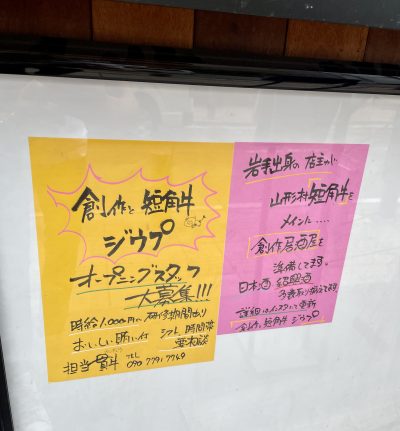 創作と短角牛
ジウプ
オープニングスタッフ
大募集!!!
時給1,000円〜 研修期間あり
おいしい賄い付 シフト、時間帯
要相談
担当
TEL
090 7791 7749
岩手出身の店主が
山形村短角牛を
メインに....
創作居酒屋を
準備してます。
日本酒 紹興酒
多数取り揃えてます
詳細はインスタにて更新
創作と短角牛 ジウプ